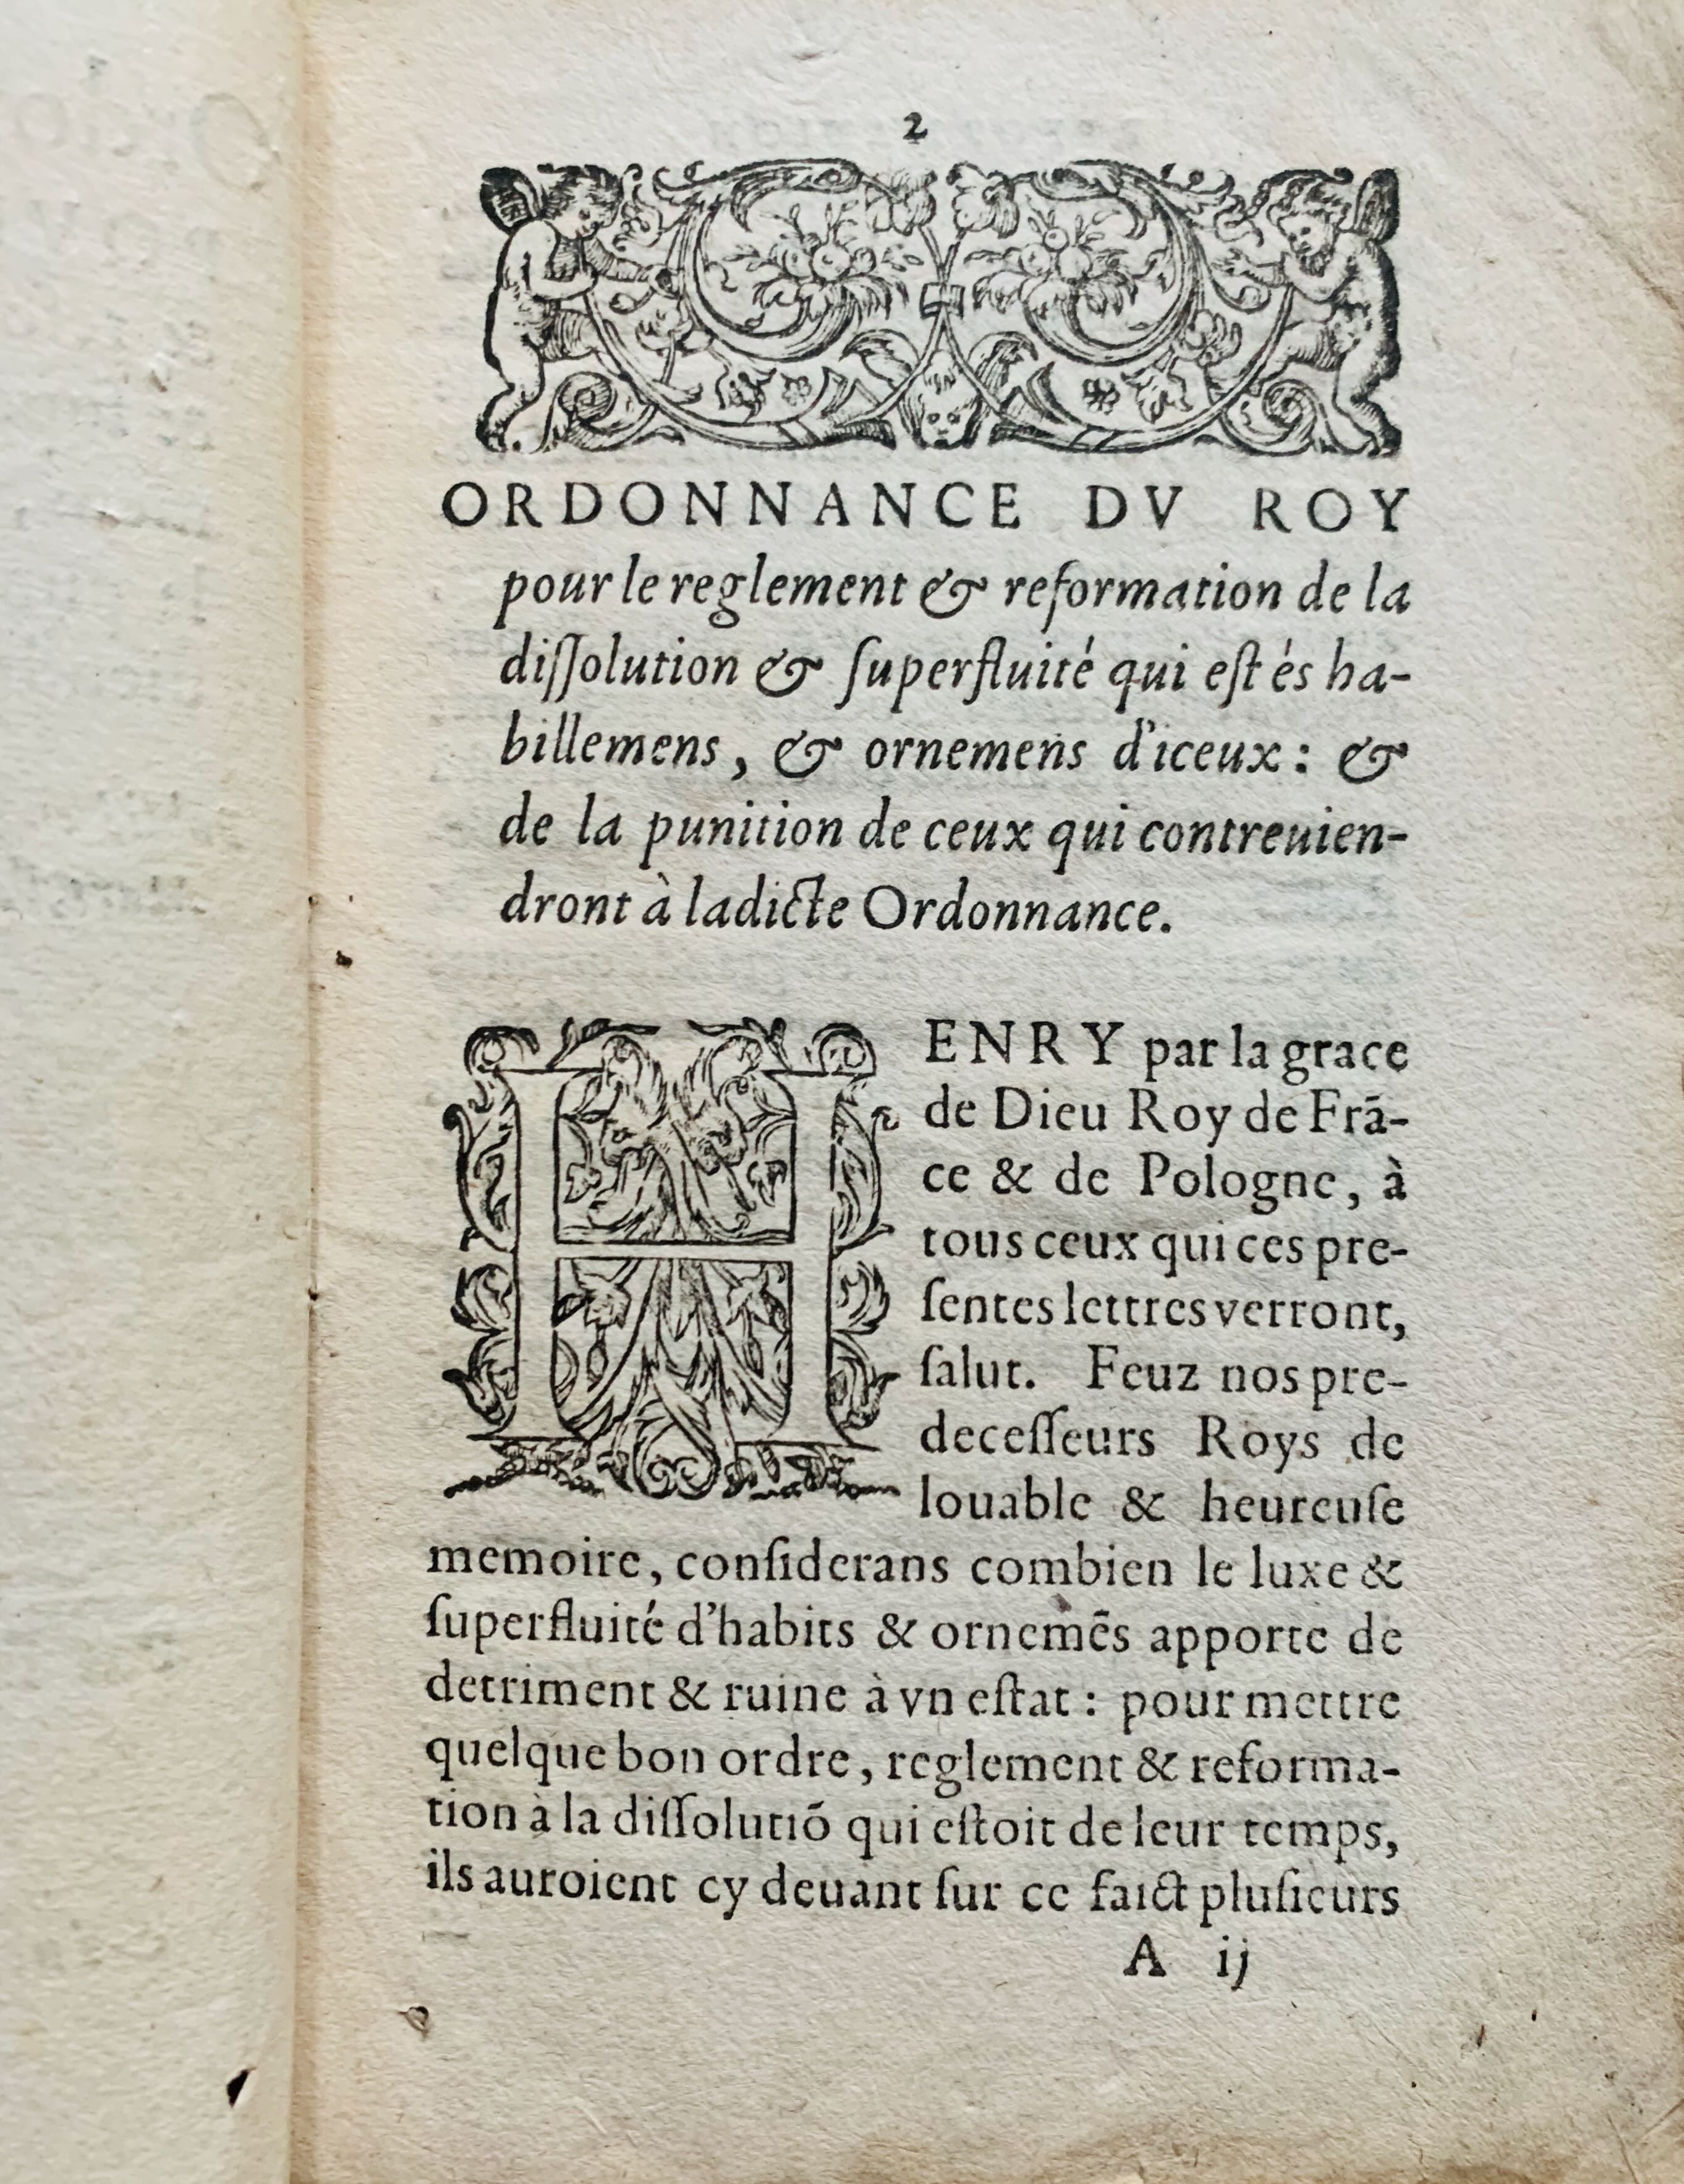 2
ORDONNANCE DV ROY
pour le reglement & reformation de la
diſſolution & ſuperfluité qui eſt és ha-
billemens, & ornemens d'iceux: &
de la punition de ceux qui contreuien-
dront à ladicte Ordonnance.
HENRY par la grace
de Dieu Roy de Frā-
ce & de Pologne, à
tous ceux qui ces pre-
ſentes lettres verront,
ſalut. Feuz nos pre-
deceſſeurs Roys de
louable & heureuſe
memoire, conſiderans combien le luxe &
ſuperfluité d'habits & ornemēs apporte de
detriment & ruine à vn eſtat: pour mettre
quelque bon ordre, reglement & reforma-
tion à la diſſolutiō qui eſtoit de leur temps,
ils auroient cy deuant ſur ce faict pluſieurs
A ij